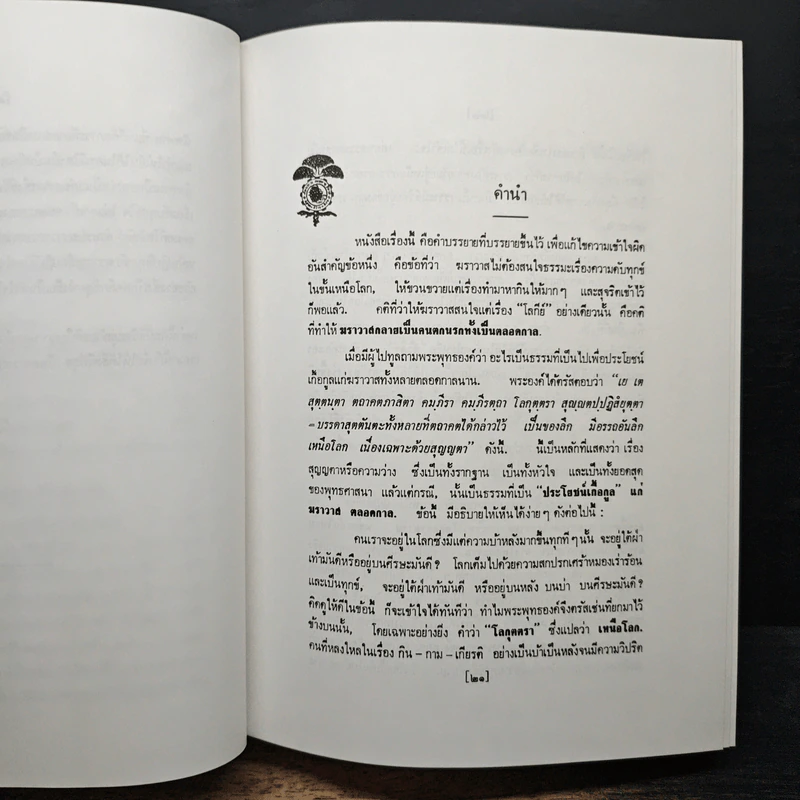 คำนำ
หนังสือเรื่องนี้ คือคำบรรยายที่บรรยายขึ้นไว้ เพื่อแก้ไขความเข้าใจผิด
อันสำคัญข้อหนึ่ง คือข้อที่ว่า ฆราวาสไม่ต้องสนใจธรรมะเรื่องความดับทุกข์
ในชั้นเหนือโลก, ให้ขวนขวายแต่เรื่องทำมาหากินให้มากๆ และสุจริตเข้าไว้
ก็พอแล้ว. คติที่ว่าให้ฆราวาสสนใจแต่เรื่อง “โลกีย์” อย่างเดียวนั้น คือคติ
ที่ทำให้ ฆราวาสกลายเป็นคนตกนรกทั้งเป็นตลอดกาล.
เมื่อมีผู้ไปทูลถามพระพุทธองค์ว่า อะไรเป็นธรรมที่เป็นไปเพื่อประโยชน์
เกื้อกูลแก่ฆราวาสทั้งหลายตลอดกาลนาน. พระองค์ได้ตรัสตอบว่า “เย เต
สุตฺตนฺตา ตถาคตภาสิตา คมฺภีรา คมฺภีรตฺถา โลกุตฺตรา สุญฺญตปฺปฏิสํยุตฺตา
=บรรดาสุตตันตะทั้งหลายที่ตถาคตได้กล่าวไว้ เป็นของลึก มีอรรถอันลึก
เหนือโลก เนื่องเฉพาะด้วยสุญญตา” ดังนี้. นี้เป็นหลักที่แสดงว่า เรื่อง
สุญญตาหรือความว่าง ซึ่งเป็นทั้งรากฐาน เป็นทั้งหัวใจ และเป็นทั้งยอดสุด
ของพุทธศาสนา แล้วแต่กรณี, นั้นเป็นธรรมที่เป็น “ประโยชน์เกื้อกูล” แก่
ฆราวาส ตลอดกาล. ข้อนี้ มีอธิบายให้เห็นได้ง่ายๆ ดังต่อไปนี้ :
คนเราจะอยู่ในโลกซึ่งมีแต่ความบ้าหลังมากขึ้นทุกทีๆนั้น จะอยู่ใต้ฝ่า
เท้ามันดีหรืออยู่บนศีรษะมันดี ? โลกเต็มไปด้วยความสกปรกเศร้าหมองเร่าร้อน
และเป็นทุกข์, จะอยู่ใต้ฝ่าเท้ามันดี หรืออยู่บนหลัง บนบ่า บนศีรษะมันดี ?
คิดดูให้ดีในข้อนี้ ก็จะเข้าใจได้ทันทีว่า ทำไมพระพุทธองค์จึงตรัสเช่นที่ยกมาไว้
ข้างบนนั้น, โดยเฉพาะอย่างยิ่ง คำว่า “โลกุตตรา” ซึ่งแปลว่า เหนือโลก.
คนที่หลงใหลในเรื่อง กิน – กาม – เกียรติ อย่างเป็นบ้าเป็นหลังจนมีความวิปริต
[๒๑]